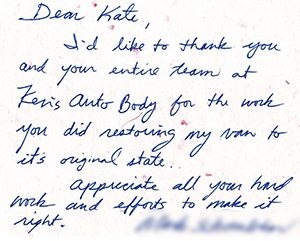 Dear Kate,
I'd like to thank you
and your entire team at
Ken's Auto Body for the work
you did restoring my van to
it's original state.
Appriciate all your hard
work and efforts to make it
right.